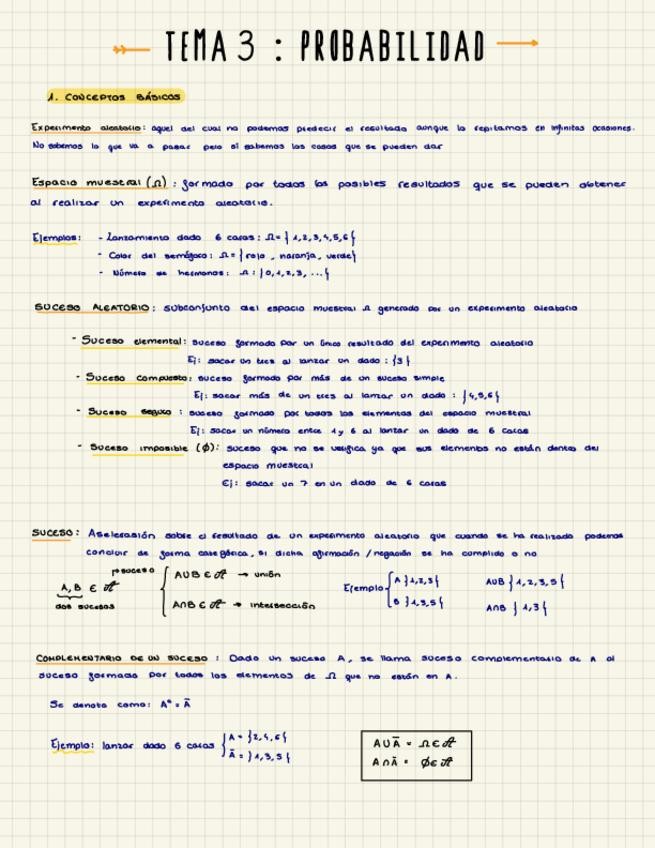 TEMA 3 : PROBABILIDAD
1. CONCEPTOS BÁSICOS
Experimento aleatorio: aquel del cual no podemos predecir el resultado aunque lo repitamos en infinitas ocasiones.
No sabemos lo que va a pasar pero si sabemos las cosas que se pueden dar
Espacio muestral (Ω) : formado por todos los posibles resultados que se pueden obtener
al realizar un experimento aleatorio.
Ejemplos: - Lanzamiento dado 6 caras : Ω = {1,2,3,4,5,6}
- Color del semáforo : Ω = {rojo, naranja, verde}
- Número de hermanos: Ω : {0,1,2,3, ...}
SUCESO ALEATORIO : subconjunto del espacio muestral Ω generado por un experimento aleatorio
- Suceso elemental: suceso formado por un único resultado del experimento aleatorio
Ej: sacar un tres al lanzar un dado : {3}
- Suceso compuesto: suceso formado por más de un suceso simple
Ej: sacar más de un tres al lanzar un dado : {4,5,6}
- Suceso seguro : suceso formado por todos los elementos del espacio muestral
Ej: sacar un número entre 1 y 6 al lanzar un dado de 6 caras
- Suceso imposible (∅): suceso que no se verifica ya que sus elementos no están dentro del
espacio muestral
Ej: sacar un 7 en un dado de 6 caras
SUCESO: Aseleración sobre el resultado de un experimento aleatorio que cuando se ha realizado podemos
concluir de forma categórica, si dicha afirmación / negación se ha cumplido o no
suceso
A, B ∈ 𝒜
dos sucesos
A∪B ∈ 𝒜 → unión
A∩B ∈ 𝒜 → intersección
Ejemplo
A {1,2,3}
B {1,3,5}
A∪B {1,2,3,5}
A∩B {1,3}
COMPLEMENTARIO DE UN SUCESO : Dado un suceso A, se llama suceso complementario de A al
suceso formado por todos los elementos de Ω que no están en A.
Se denota como: Aᶜ = Ā
Ejemplo: lanzar dado 6 caras
A = {2,4,6}
Ā = {1,3,5}
A∪Ā = Ω ∈ 𝒜
A∩Ā = ∅ ∈ 𝒜